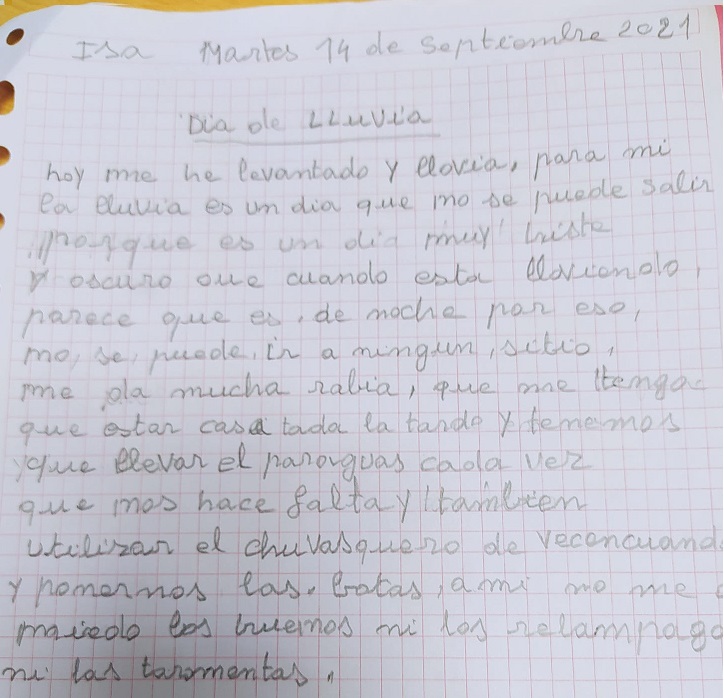 Isa Martes 14 de septiembre 2021
Dia de LLuvia
hoy me he levantado y llovia, para mi
la lluvia es un dia que no se puede salir
porque es un dia muy triste
y oscuro que cuando esta lloviendo,
parece que es, de noche por eso,
no, se, puede, ir a ningun, sitio,
me da mucha rabia, que me tenga
que estar casa toda la tarde y tenemos
que llevar el paraguas cada vez
que nos hace falta y tambien
utilizar el chuvasquero de vecencuand
y ponernos las. botas, a mi no me
miedo los truenos ni los relampago
ni las taromentas,